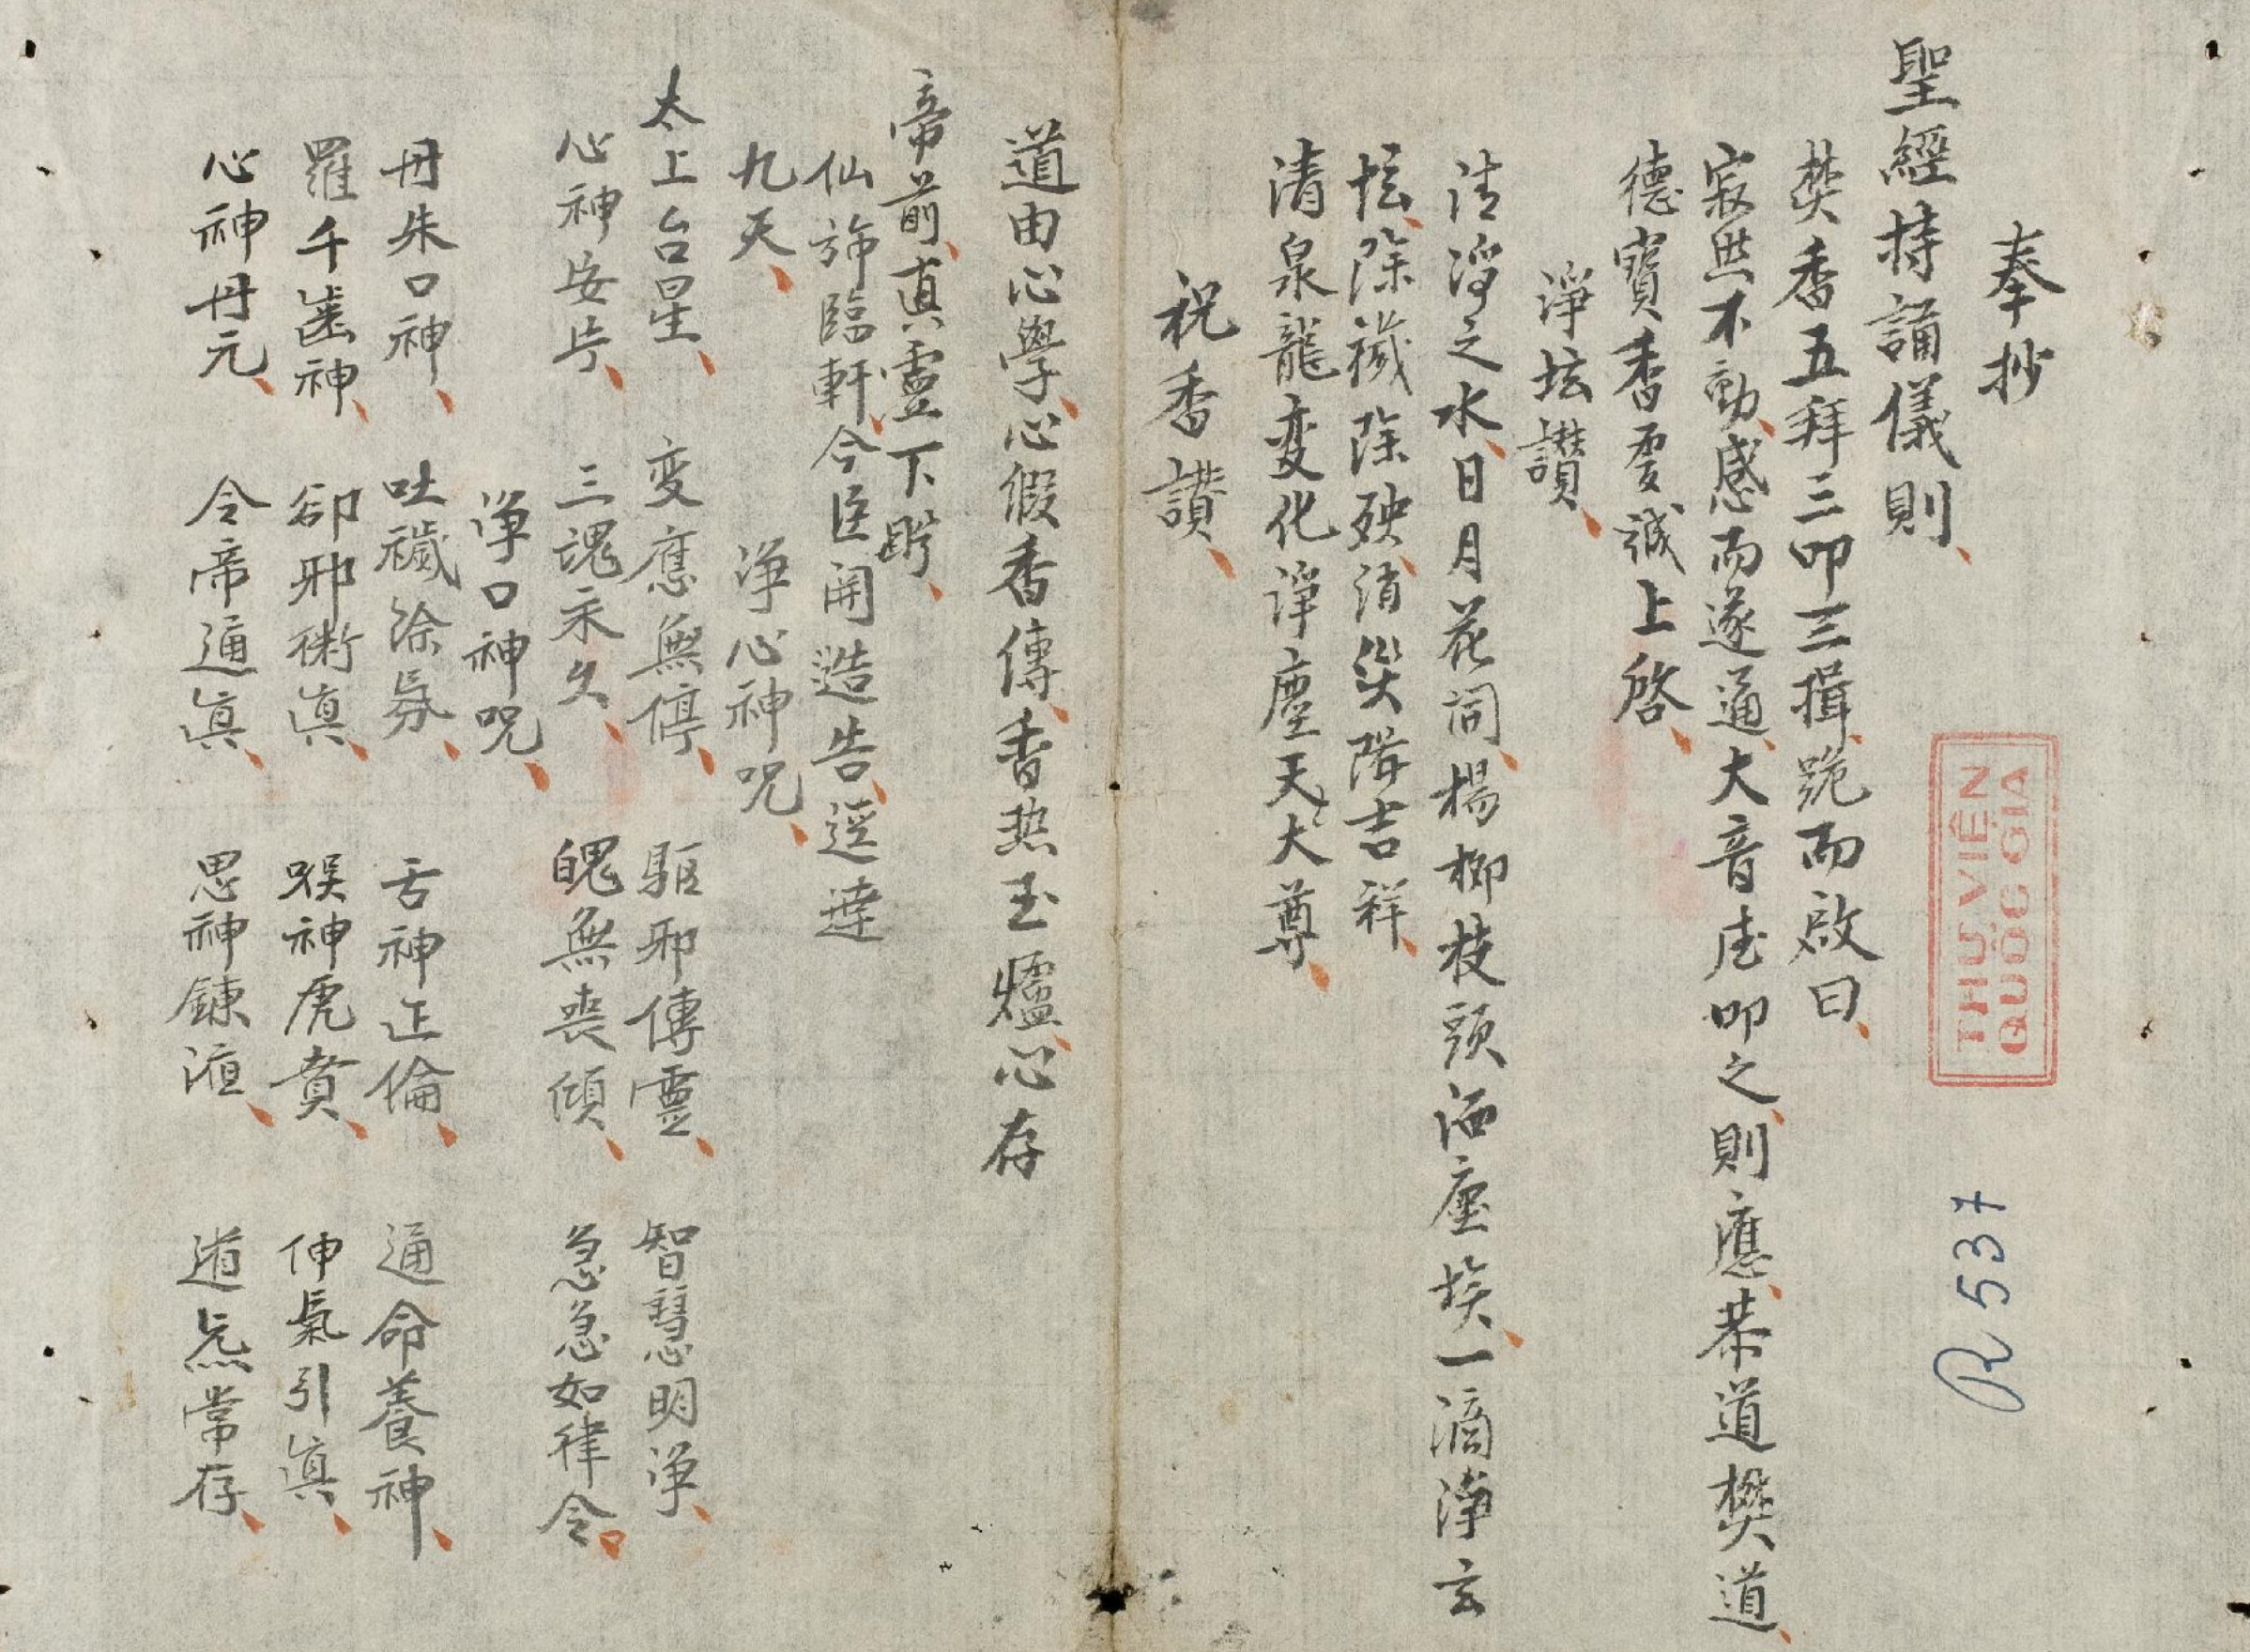 奉抄
聖經持誦儀則、
焚香五拜三叩三揖、跪而啟曰、
寂然不動、感而遂通、大音希叩之、則應、恭道樊道、
德寶香虔誠上啓、
淨坛讃、
清淨之水、日月花同、楊柳枝頭洒塵埃、一滴淨玄
坛、除穢除殃、消災降吉祥、
清泉龍变化淨塵天大尊、
祝香讃、
道由心學、心假香傳、香热玉爐、心存
帝前、真靈下盼、
仙斾臨軒、今臣開造告、逕達
九天、
淨心神咒、
太上台星、 变應無停、 驅邪傳靈、 智慧明淨、
心神安片、 三魂永久、 魄無喪傾、 急急如律令、
淨口神咒、
丹朱口神、 吐穢除氛、 舌神正倫、 通命養神、
羅千齒神、 卻邪衛眞、 喉神虎賁、 伸氣引眞、
心神丹元、 令帝通眞、 思神鍊液、 道炁常存、
THƯ VIỆN
QUỐC GIA
R 537